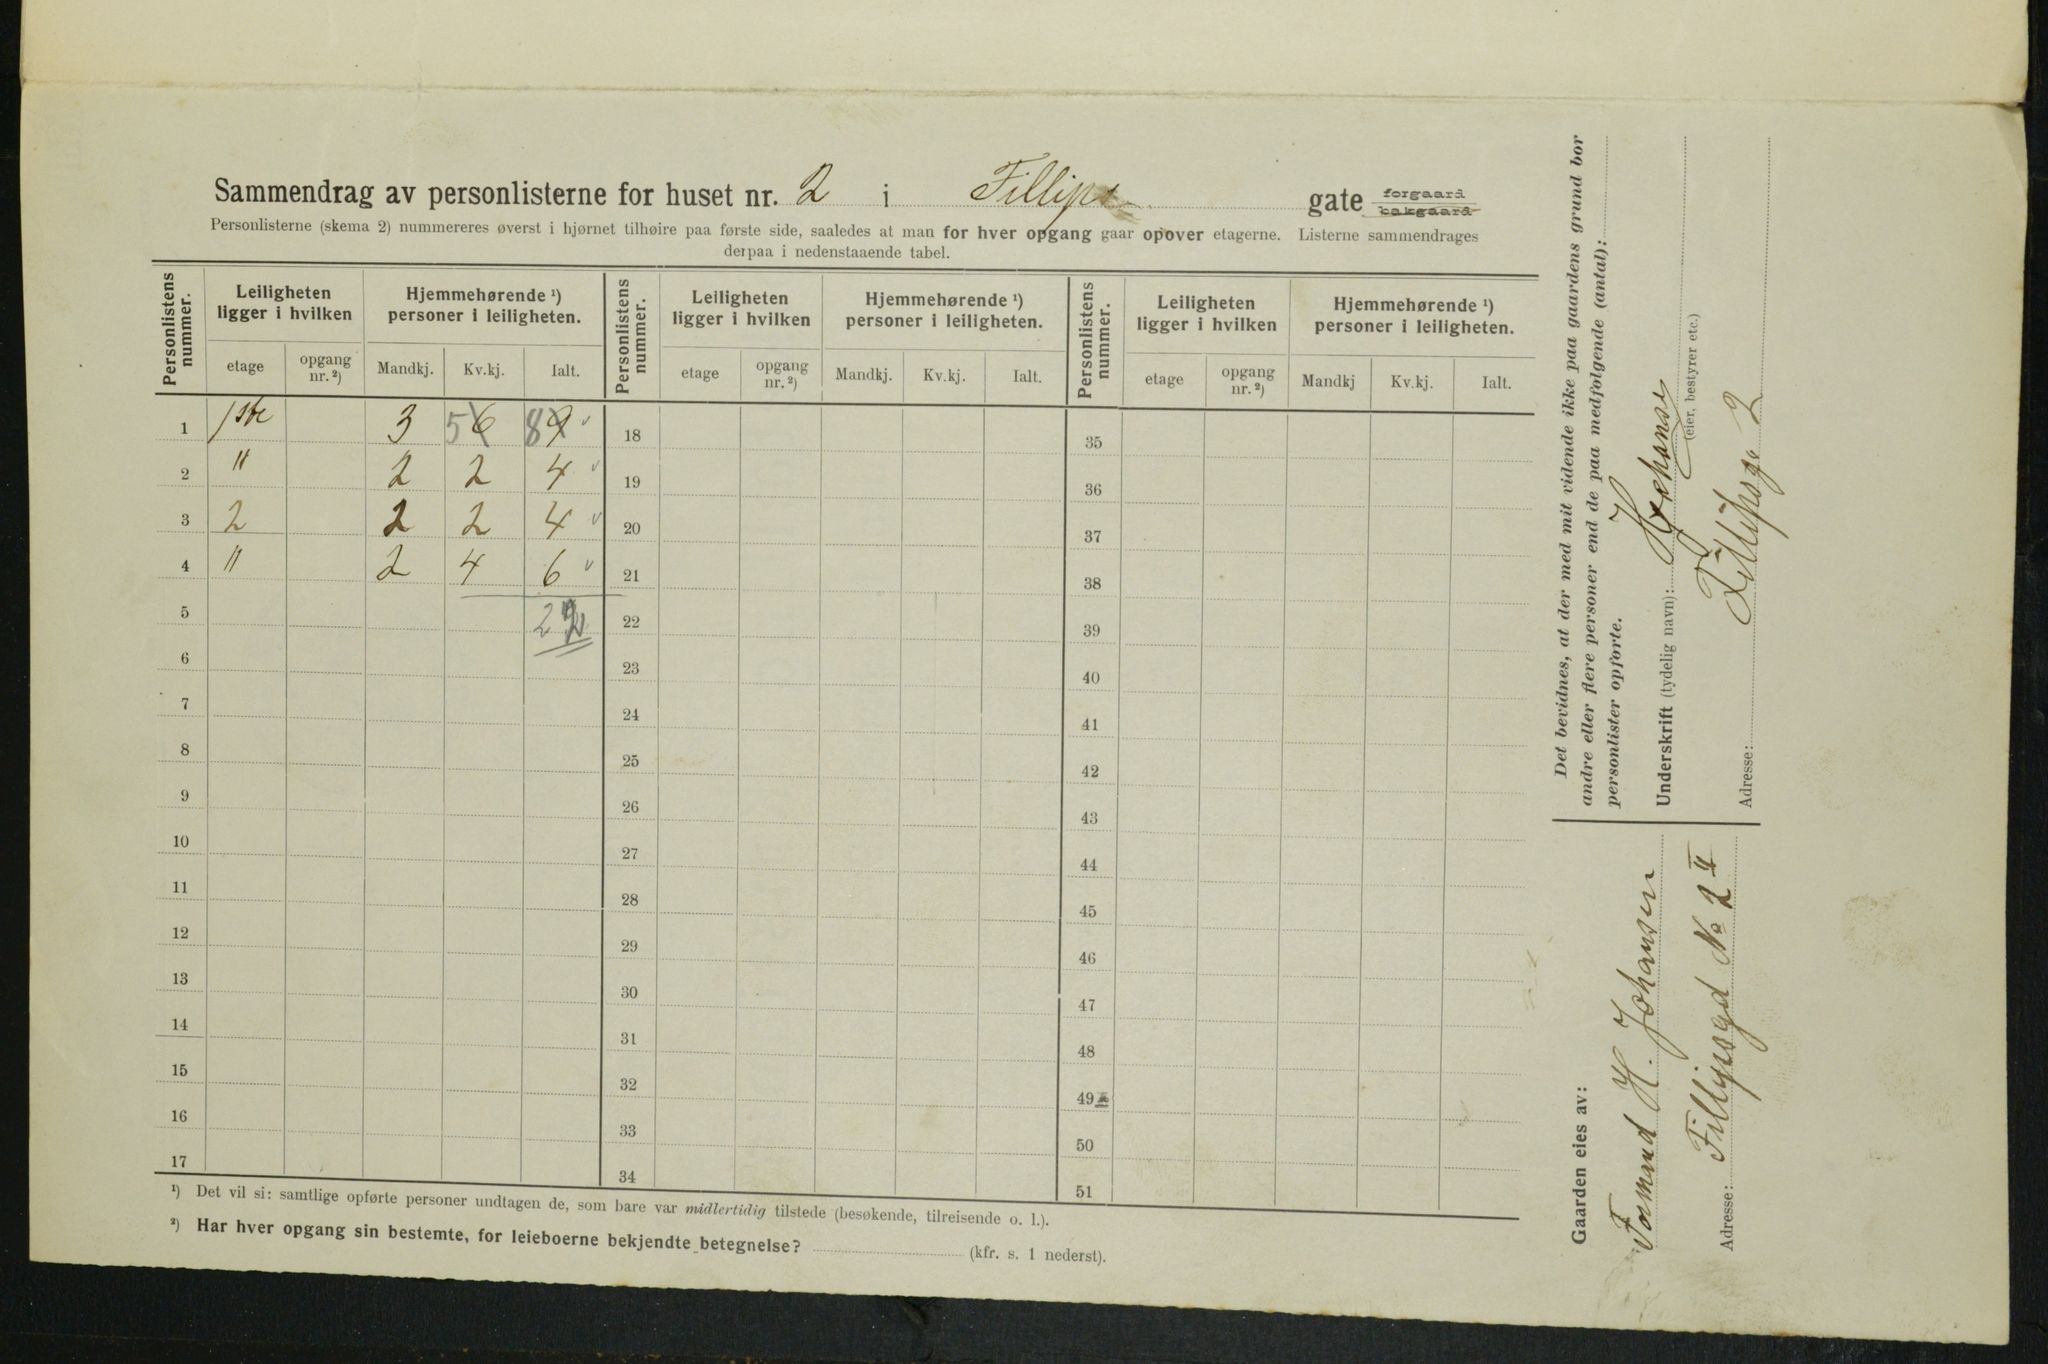 Sammendrag av personlisterne for huset nr. 2 i Fillips gate forgaard bakgaard
Personlisterne (skema 2) nummereres øverst i hjørnet tilhøire paa første side, saaledes at man for hver opgang gaar opover etagerne. Listerne sammendrages
derpaa i nedenstaaende tabel.
Personlistens nummer. Leiligheten ligger i hvilken Hjemmehørende ¹) personer i leiligheten. Personlistens nummer. Leiligheten ligger i hvilken Hjemmehørende ¹) personer i leiligheten. Personlistens nummer. Leiligheten ligger i hvilken Hjemmehørende ¹) personer i leiligheten.
etage opgang nr. ²) Mandkj. Kv.kj. Ialt. etage opgang nr. ²) Mandkj. Kv.kj. Ialt. etage opgang nr. ²) Mandkj Kv.kj. Ialt.
1 1ste 3 5 6 8 9 18 35
2 " 2 2 4 19 36
3 2 2 2 4 20 37
4 " 2 4 6 21 38
5 22 22 39
6 23 40
7 24 41
8 25 42
9 26 43
10 27 44
11 28 45
12 29 46
13 30 47
14 31 48
15 32 49
16 33 50
17 34 51
¹) Det vil si: samtlige opførte personer undtagen de, som bare var midlertidig tilstede (besøkende, tilreisende o. l.).
²) Har hver opgang sin bestemte, for leieboerne bekjendte betegnelse? (kfr. s. 1 nederst).
Det bevidnes, at der med mit vidende ikke paa gaardens grund bor
andre eller flere personer end de paa medfølgende (antal):
personlister opførte.
Underskrift (tydelig navn): H Johansen
(eier, bestyrer etc.)
Adresse: Fillipsg. 2
Gaarden eies av:
Formand H. Johansen
Adresse: Fillipsgd No 2 II